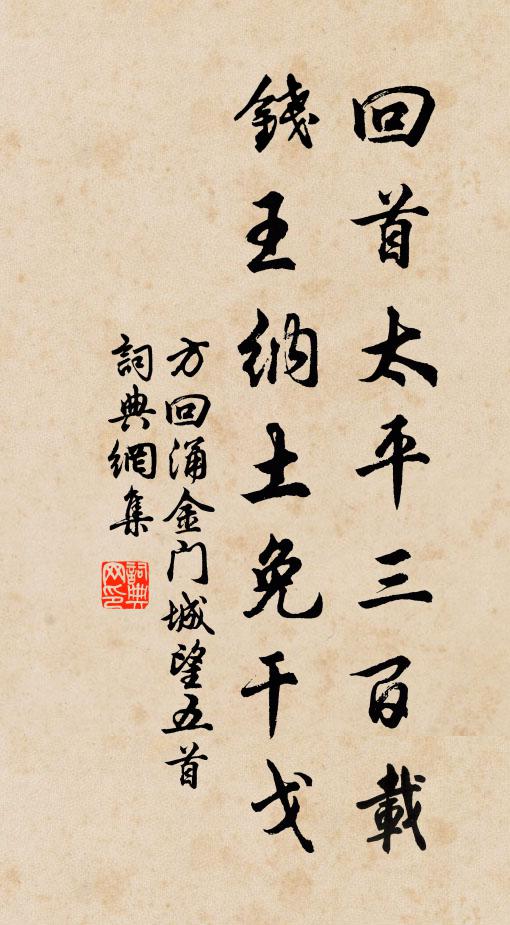 回首太平三百載
錢王納土免干戈
方回涌金门城望五首
詞典網集
詞典网印